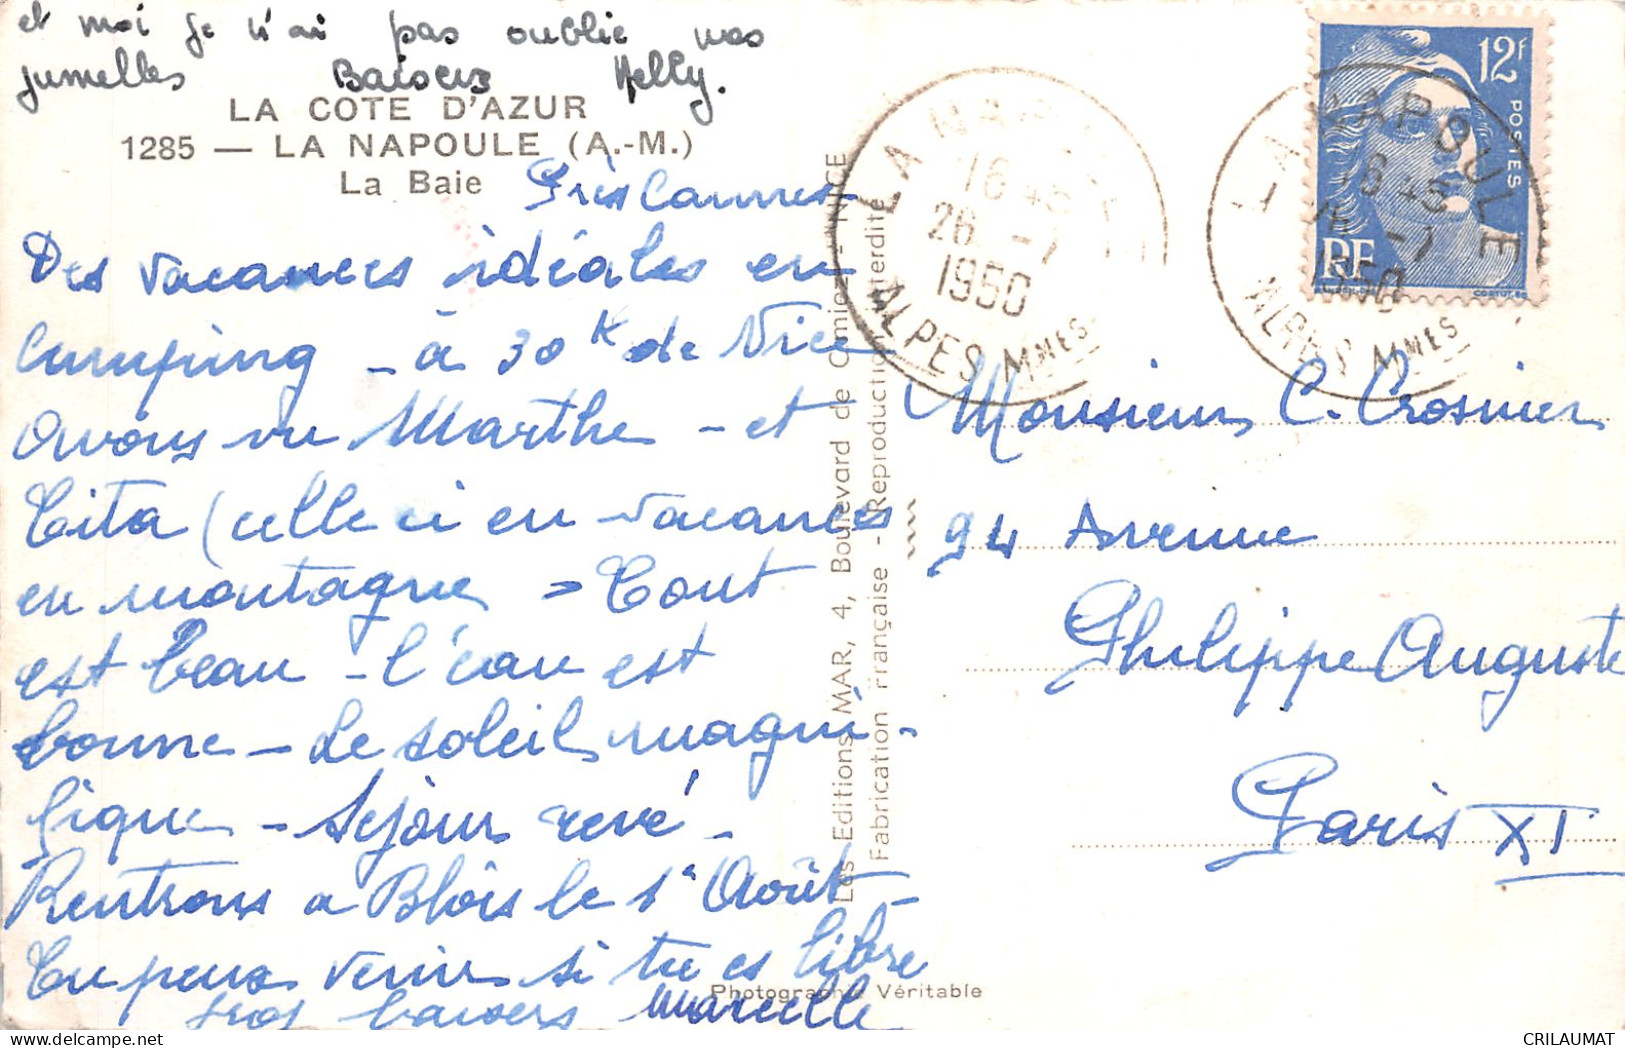 et moi je n'ai pas oublié nos
jumelles Baisers Nelly.
LA COTE D'AZUR
1285 — LA NAPOULE (A.-M.)
La Baie
Près Cannes
Des vacances idéales en
Camping - à 30 k de Nice
Avons vu Marthe - et
Tita (celle ci en vacances
en montagne = Tout
est beau - l'eau est
bonne - Le soleil magni-
fique - Séjour revé -
Rentrons a Blois le 1er Août -
Tu peux venir si tu es libre
Gros baisers Marcelle
Photographie Véritable
Les Editions MAR, 4, Boulevard de Cimiez - NICE
Fabrication Française - Reproduction interdite
LA NAPOULE
16 45
26 -7
1950
ALPES MMES
LA NAPOULE
16 45
26 -7
1950
ALPES MMES
12F
POSTES
RF
Monsieur C. Crosnier
94 Avenue
Philippe Auguste
Paris XI
CRILAUMAT